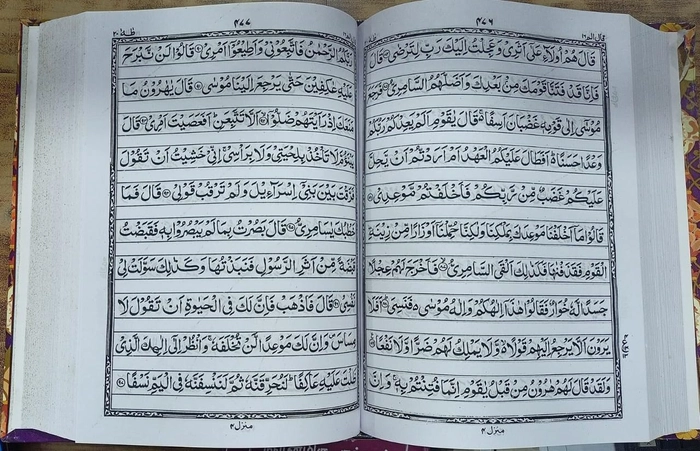 قال الم ١٦
٤٧٦
قَالَ هُمْ أُولَآءِ عَلٰٓى اَثَرِىْ وَعَجِلْتُ اِلَيْكَ رَبِّ لِتَرْضٰى قَالَ
فَاِنَّا قَدْ فَتَنَّا قَوْمَكَ مِنْۢ بَعْدِكَ وَاَضَلَّهُمُ السَّامِرِىُّ فَرَجَعَ
مُوْسٰٓى اِلٰى قَوْمِهٖ غَضْبَانَ اَسِفًا قَالَ يٰقَوْمِ اَلَمْ يَعِدْكُمْ رَبُّكُمْ
وَعْدًا حَسَنًا اَفَطَالَ عَلَيْكُمُ الْعَهْدُ اَمْ اَرَدْتُّمْ اَنْ يَّحِلَّ
عَلَيْكُمْ غَضَبٌ مِّنْ رَّبِّكُمْ فَاَخْلَفْتُمْ مَّوْعِدِىْ
قَالُوْا مَآ اَخْلَفْنَا مَوْعِدَكَ بِمَلْكِنَا وَلٰكِنَّا حُمِّلْنَآ اَوْزَارًا مِّنْ زِيْنَةِ
الْقَوْمِ فَقَذَفْنٰهَا فَكَذٰلِكَ اَلْقَى السَّامِرِىُّ فَاَخْرَجَ لَهُمْ عِجْلًا
جَسَدًا لَّهٗ خُوَارٌ فَقَالُوْا هٰذَآ اِلٰهُكُمْ وَاِلٰهُ مُوْسٰى فَنَسِىَ اَفَلَا
يَرَوْنَ اَلَّا يَرْجِعُ اِلَيْهِمْ قَوْلًا وَّلَا يَمْلِكُ لَهُمْ ضَرًّا وَّلَا نَفْعًا
وَلَقَدْ قَالَ لَهُمْ هٰرُوْنُ مِنْ قَبْلُ يٰقَوْمِ اِنَّمَا فُتِنْتُمْ بِهٖ وَاِنَّ
منزل ٤
٤٧٧
طٰهٰ ٢٠
رَبَّكُمُ الرَّحْمٰنُ فَاتَّبِعُوْنِىْ وَاَطِيْعُوْٓا اَمْرِىْ قَالُوْا لَنْ نَّبْرَحَ
عَلَيْهِ عٰكِفِيْنَ حَتّٰى يَرْجِعَ اِلَيْنَا مُوْسٰى قَالَ يٰهٰرُوْنُ مَا
مَنَعَكَ اِذْ رَاَيْتَهُمْ ضَلُّوْٓا اَلَّا تَتَّبِعَنِ اَفَعَصَيْتَ اَمْرِىْ قَالَ
يَبْنَؤُمَّ لَا تَاْخُذْ بِلِحْيَتِىْ وَلَا بِرَاْسِىْ اِنِّىْ خَشِيْتُ اَنْ تَقُوْلَ
فَرَّقْتَ بَيْنَ بَنِىْٓ اِسْرَآءِيْلَ وَلَمْ تَرْقُبْ قَوْلِىْ قَالَ فَمَا
خَطْبُكَ يٰسَامِرِىُّ قَالَ بَصُرْتُ بِمَا لَمْ يَبْصُرُوْا بِهٖ فَقَبَضْتُ
قَبْضَةً مِّنْ اَثَرِ الرَّسُوْلِ فَنَبَذْتُهَا وَكَذٰلِكَ سَوَّلَتْ لِىْ
نَفْسِىْ قَالَ فَاذْهَبْ فَاِنَّ لَكَ فِى الْحَيٰوةِ اَنْ تَقُوْلَ لَا
مِسَاسَ وَاِنَّ لَكَ مَوْعِدًا لَّنْ تُخْلَفَهٗ وَانْظُرْ اِلٰٓى اِلٰهِكَ الَّذِىْ
ظَلْتَ عَلَيْهِ عَاكِفًا لَنُحَرِّقَنَّهٗ ثُمَّ لَنَنْسِفَنَّهٗ فِى الْيَمِّ نَسْفًا
منزل ٤